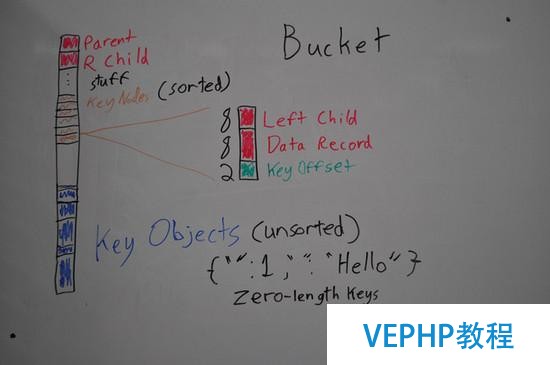 Bucket
Parent
R Child
stuff
Key Nodes (sorted)
8 Left Child
8 Data Record
2 Key Offset
Key Objects (unsorted)
{"":1,"":"Hello"}
Zero-length Keys
VEPHP教程